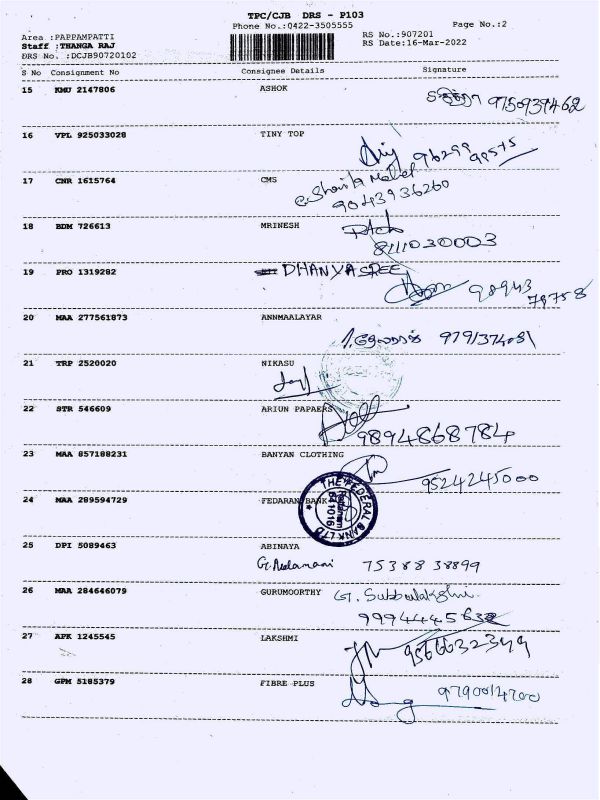 TPC/CJB DRS - P103
Phone No.:0422-3505555
Page No.:2
Area :PAPPAMPATTI
RS No.:907201
Staff :THANGA RAJ
RS Date:16-Mar-2022
DRS No. :DCJB90720102
S No Consignment No Consignee Details Signature
15 KMU 2147806 ASHOK
9150939462
16 VPL 925033028 TINY TOP
17 CNR 1615764 CMS
9043936260
18 BDM 726613 MRINESH
8111030003
19 PRO 1319282 DHANYA SREE
98943
79758
20 MAA 277561873 ANNMAALAYAR
21 TRP 2520020 NIKASU
22 STR 546609 ARIUN PAPAERS
9894868784
23 MAA 857188231 BANYAN CLOTHING
9524245000
24 MAA 289594729 FEDARAN BANK
THE FEDERAL BANK LTD
25 DPI 5089463 ABINAYA
75388 38899
26 MAA 284646079 GURUMOORTHY G. Subbulakshmi
27 APK 1245545 LAKSHMI
9566632349
28 GPM 5185379 FIBRE PLUS
9790014700